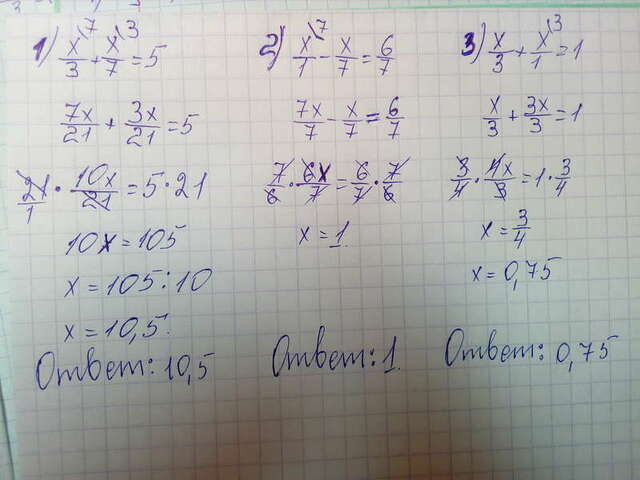 1) x\7/3 + x\3/7 = 5
7x/21 + 3x/21 = 5
21/1 · 10x/21 = 5 · 21
10x = 105
x = 105 : 10
x = 10,5.
Ответ: 10,5
2) x\7/1 - x/7 = 6/7
7x/7 - x/7 = 6/7
7/6 · 6x/7 = 6/7 · 7/6
x = 1.
Ответ: 1.
3) x/3 + x\3/1 = 1
x/3 + 3x/3 = 1
3/4 · 4x/3 = 1 · 3/4
x = 3/4
x = 0,75
Ответ: 0,75